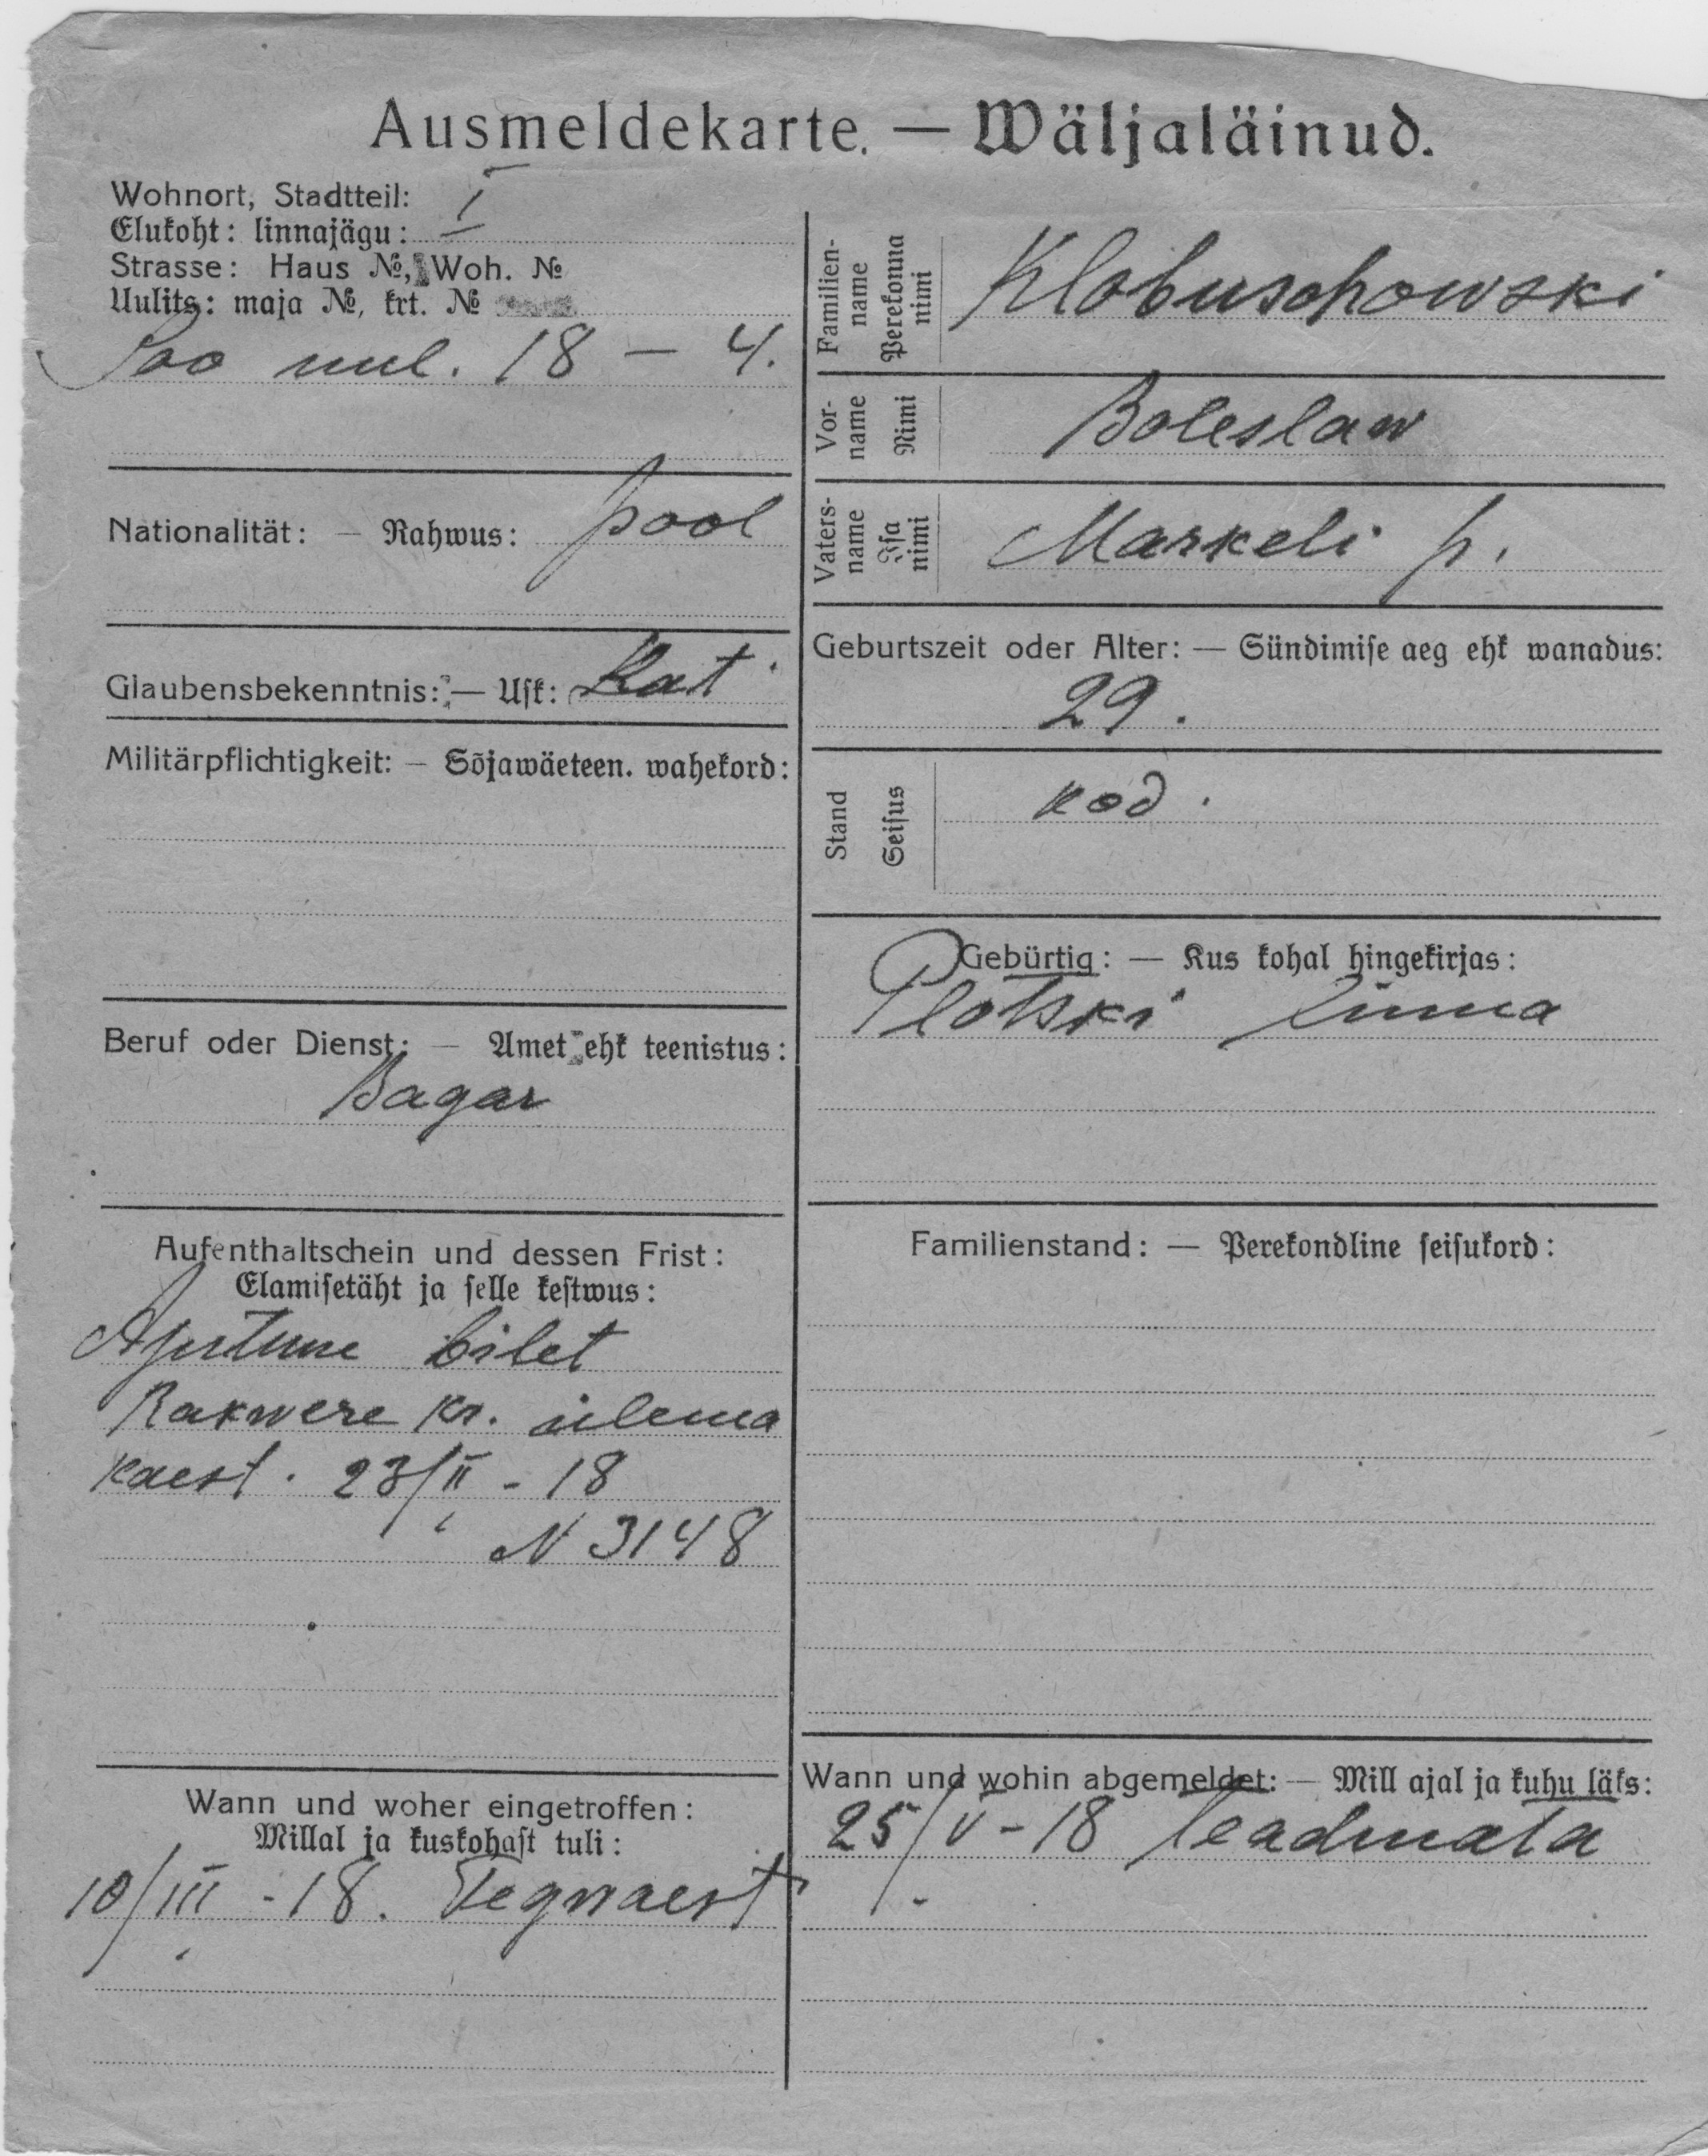 Ausmeldekarte. — Wäljaläinud.
Wohnort, Stadtteil:
Elukoht: linnajägu: I
Strasse: Haus №, Woh. №
Uulits: maja №, krt. №
Soo uul. 18 — 4.
Nationalität: — Rahwus: pool
Glaubensbekenntnis: — Usk: Kat.
Militärpflichtigkeit: — Sõjawäeteen. wahekord:
Beruf oder Dienst: — Amet ehk teenistus:
Bagar
Aufenthaltschein und dessen Frist:
Elamisetäht ja selle kestwus:
Ajutine bilet
Rakwere kr. ülema
käest. 23/II - 18
N 3148
Wann und woher eingetroffen:
Millal ja kuskohast tuli:
10/III - 18. Tegwaest
Familien-
name
Perekonna
nimi
Klobuschowski
Vor-
name
Nimi
Boleslaw
Vaters-
name
Isa
nimi
Markeli p.
Geburtszeit oder Alter: — Sündimise aeg ehk wanadus:
29.
Stand
Seisus
kod.
Gebürtig: — Kus kohal hingekirjas:
Plotski linna
Familienstand: — Perekondline seisukord:
Wann und wohin abgemeldet: — Mill ajal ja kuhu läks:
25/V - 18 teadmata